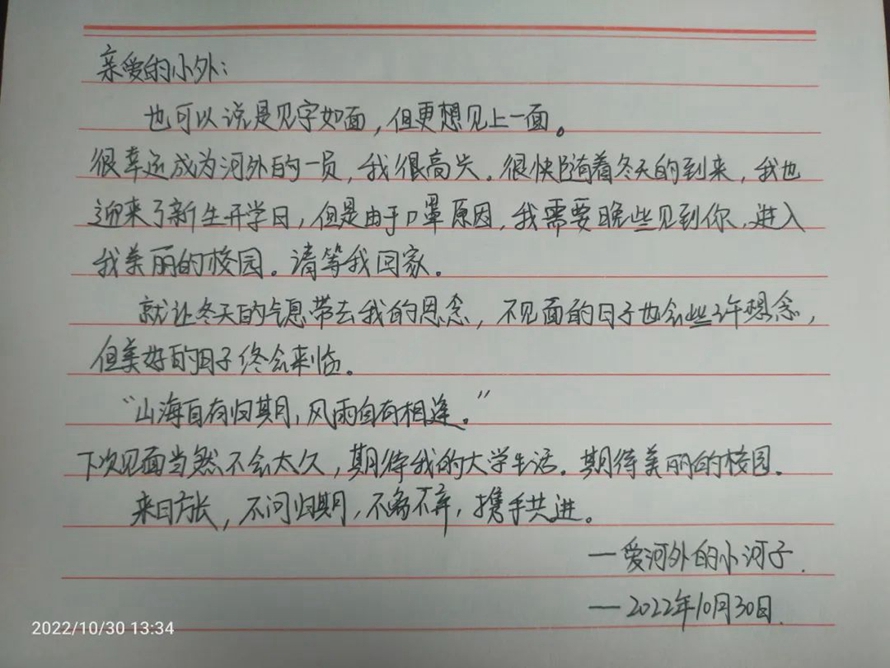 亲爱的小外：
也可以说是见字如面，但更想见上一面。
很幸运成为河外的一员，我很高兴．很快随着冬天的到来，我也
迎来了新生开学日，但是由于口罩原因，我需要晚些见到你，进入
我美丽的校园。请等我回家。
就让冬天的气息带去我的思念，不见面的日子也会些许想念，
但美好的日子终会来临。
“山海自有归期，风雨自有相逢。”
下次见面当然不会太久，期待我的大学生活．期待美丽的校园．
来日方长，不问归期，不离不弃，携手共进。
—爱河外的小河子．
—2022年10月30日．
2022/10/30 13:34